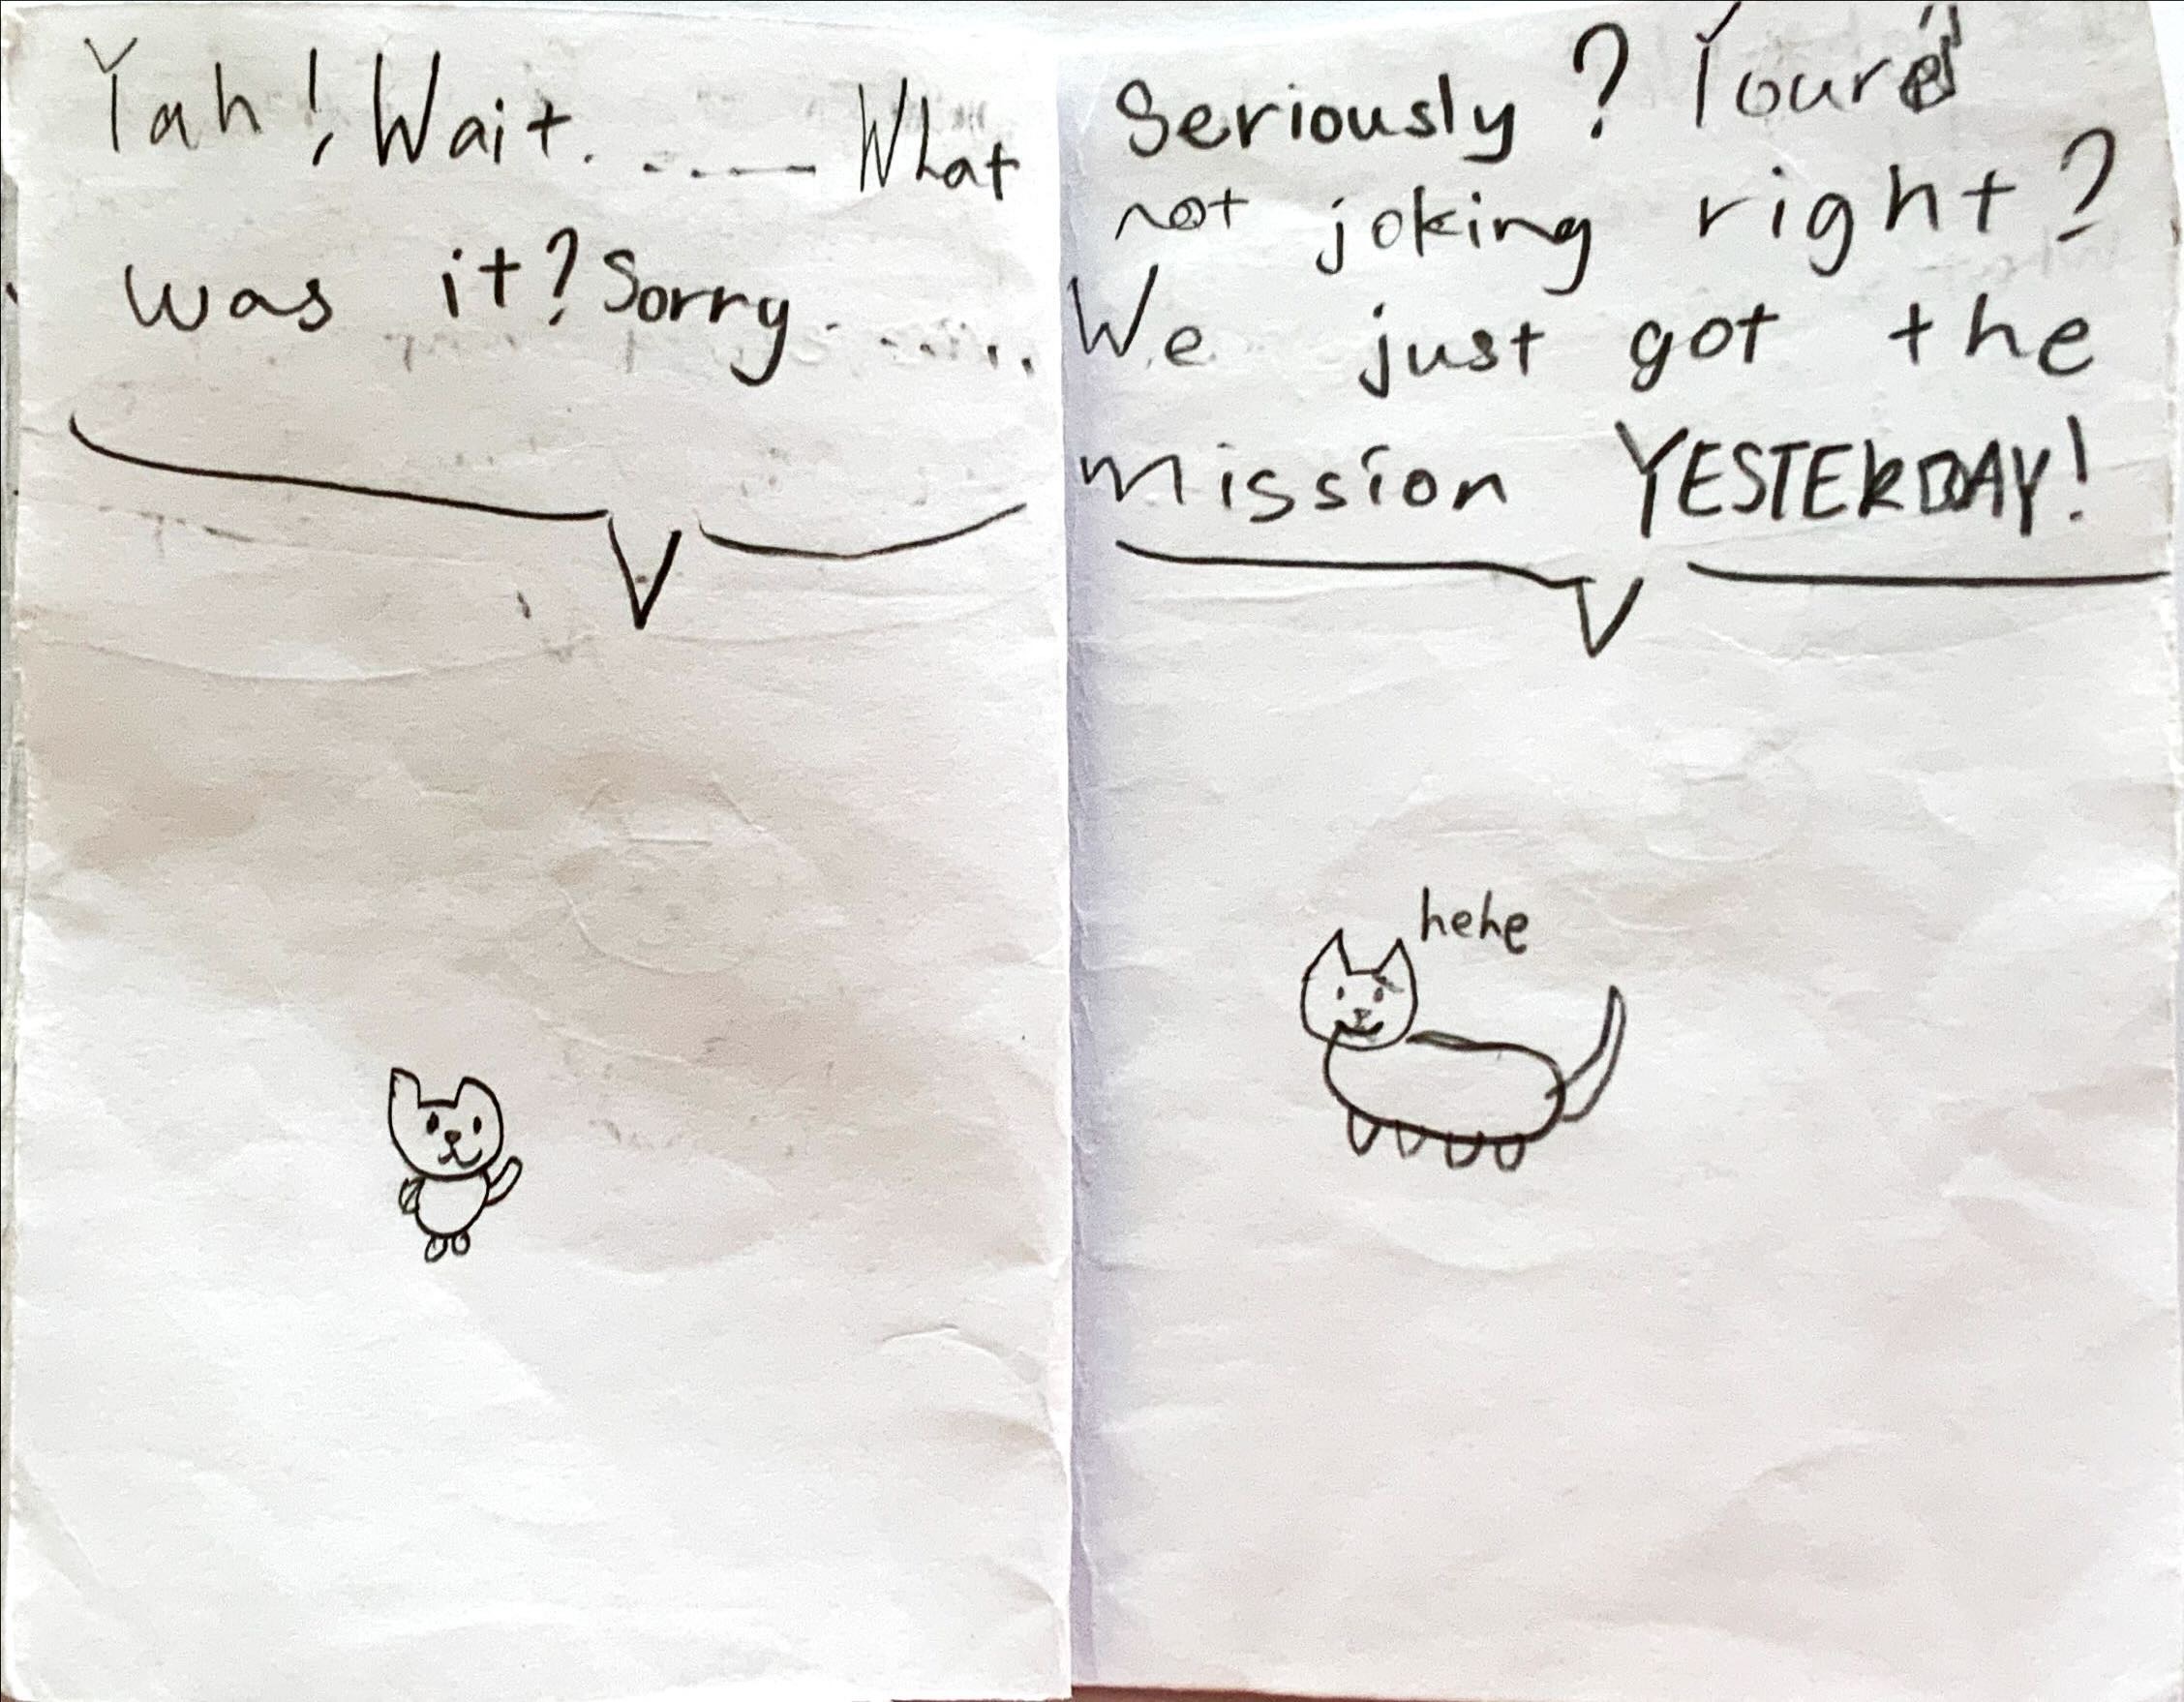 Yah! Wait. ...—— What
was it? Sorry. .....
Seriously? Youre'
not joking right?
We just got the
mission YESTERDAY!
hehe